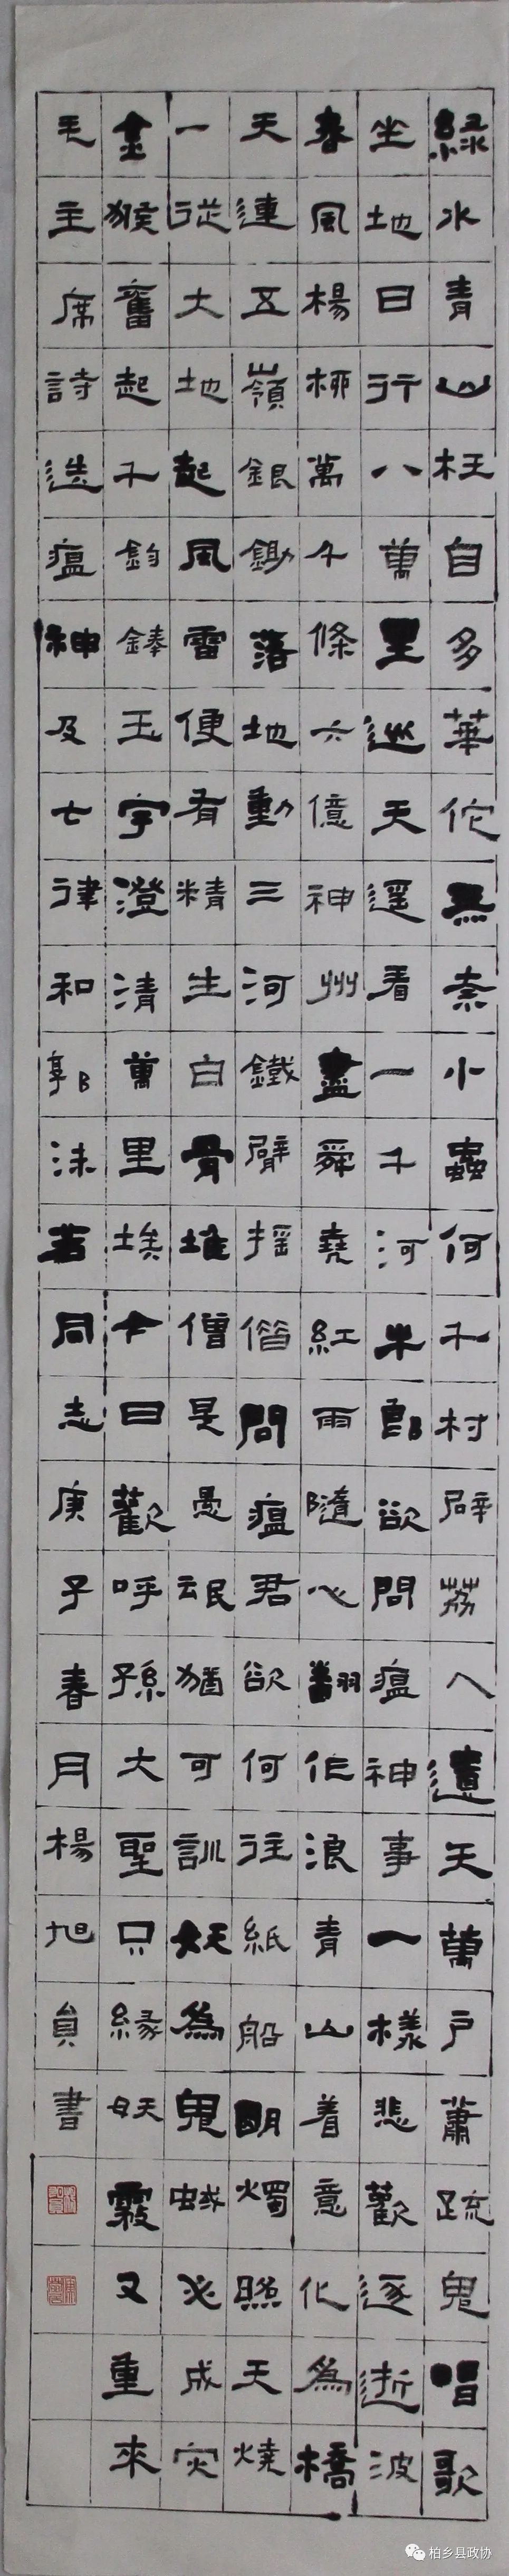 綠水青山枉自多華佗無奈小蟲何千村薜荔人遺矢萬戶蕭疏鬼唱歌
坐地日行八萬里巡天遥看一千河牛郎欲問瘟神事一樣悲歡逐逝波
春風楊柳萬千條六億神州盡舜堯紅雨隨心翻作浪青山着意化為橋
天連五嶺銀鋤落地動三河鐵臂摇借問瘟君欲何往紙船明燭照天燒
一從大地起風雷便有精生白骨堆僧是愚氓猶可訓妖為鬼蜮必成灾
金猴奮起千鈞棒玉宇澄清萬里埃今日歡呼孫大聖只緣妖霧又重來
毛主席詩送瘟神及七律和郭沫若同志庚子春月楊旭員書
柏乡县政协